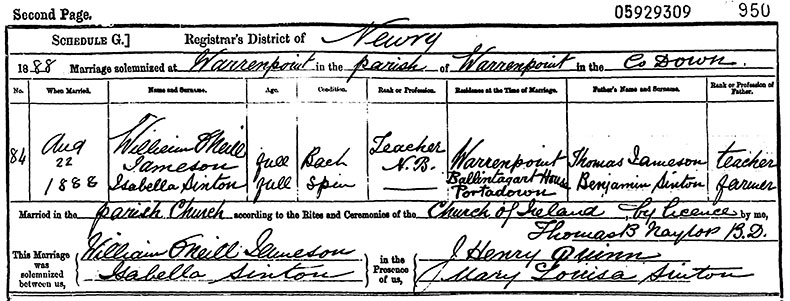 Second Page. 05929309 950
SCHEDULE G.] Registrar's District of Newry
1888 Marriage solemnized at Warrenpoint in the parish of Warrenpoint in the Co Down.
No. When Married. Name and Surname. Age. Condition. Rank or Profession. Residence at the Time of Marriage. Father's Name and Surname. Rank or Profession of Father.
84 Aug 22 1888
William O'Neill Jameson full Bach Teacher N.B. Warrenpoint Thomas Jameson teacher
Isabella Sinton full Spin — Ballintagart House Portadown Benjamin Sinton farmer
Married in the parish Church according to the Rites and Ceremonies of the Church of Ireland, by licence by me,
Thomas B Naylor B.D.
This Marriage was solemnized between us,
William O'Neill Jameson
Isabella Sinton
in the Presence of us,
J Henry Quinn
Mary Louisa Sinton